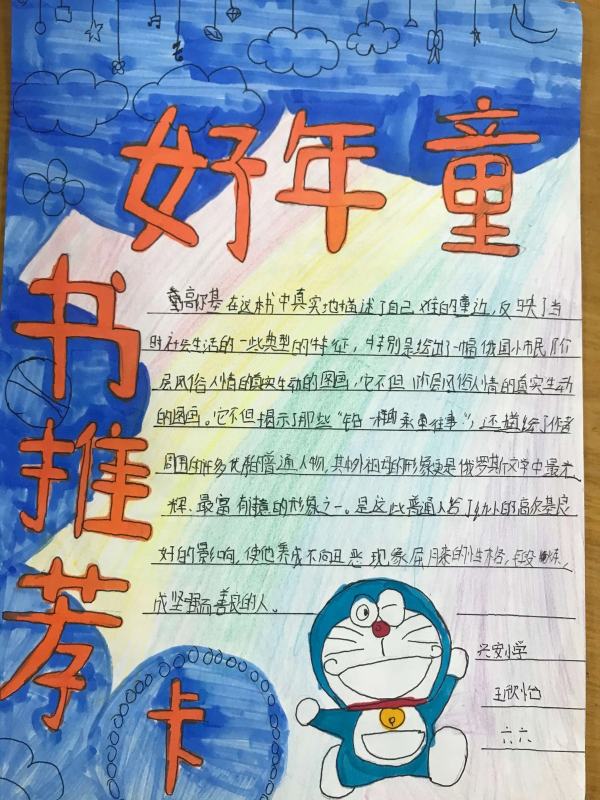 童年好
书推荐卡
高尔基在这本书中真实地描述了自己难的童边,反映了当
时社会生活的一些典型的特征,特别是绘出了一幅俄国小市民阶
层风俗人情的真实生动的图画,它不但 层风俗人情的真实生动
的图画。它不但揭示了那些“铅一样 重往事”,还描绘了作者
周围的许多优秀的普通人物,其中外祖母的形象更是俄罗斯文学中最光
辉、最富有 的形象之一。是这些普通人给了幼小的高尔基良
好的影响,使他养成不向丑恶现象屈 来的性格,
成坚强而善良的人。
兴安小学
王欣怡
六六